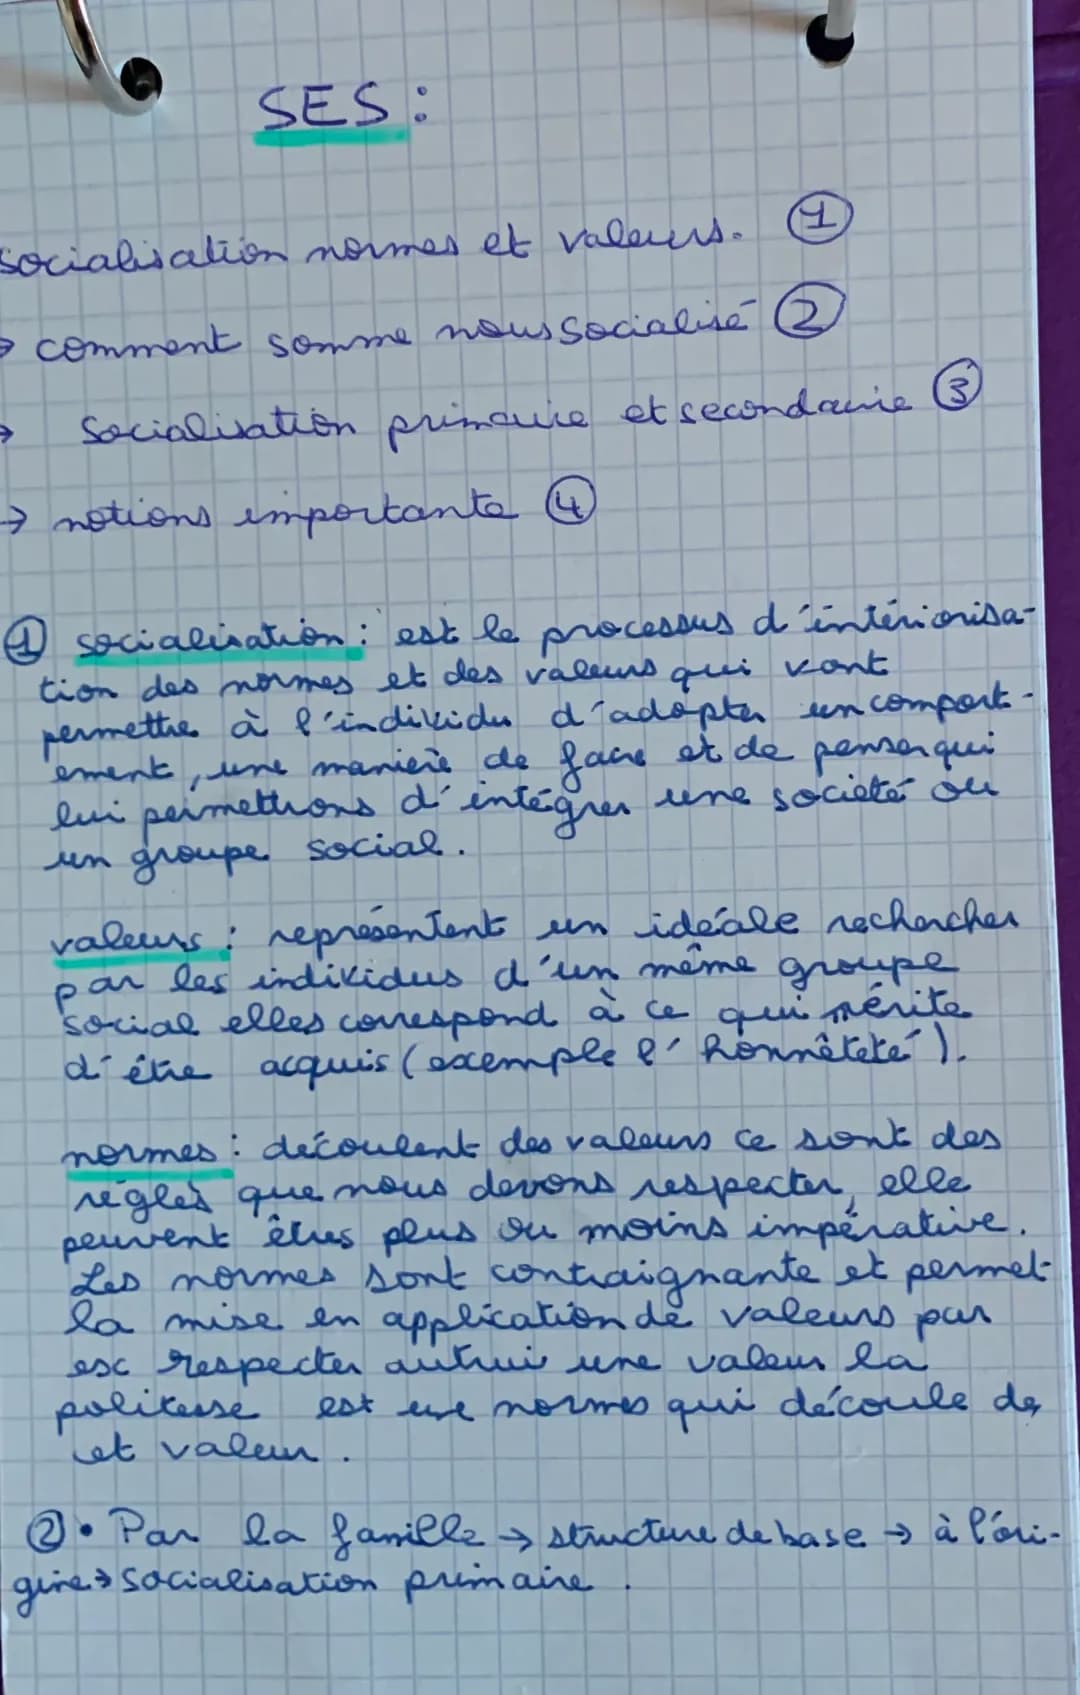 SES :
socialisation normes et valeurs. ①
→ comment somme nous socialisé ②
→ Socialisation primaire et secondaire ③
→ notions importante ④
① socialisation : est le processus d'intériorisa-
tion des normes et des valeurs qui vont
permettre à l'individu d'adopter un comport-
ement, une manière de faire et de penser qui
lui permettrons d'intégrer une société ou
un groupe social.
valeurs : représentent un idéale rechercher
par les individus d'un même groupe
social elles correspond à ce qui mérite
d'être acquis (exemple l'honnêteté).
normes : découlent des valeurs ce sont des
règles que nous devons respecter, elle
peuvent êtres plus ou moins impérative.
Les normes sont contraignante et permet
la mise en application de valeurs par
esc respecter autrui une valeur la
politesse est une normes qui découle de
cet valeur.
② • Par la famille → structure de base → à l'ori-
gine → socialisation primaire.